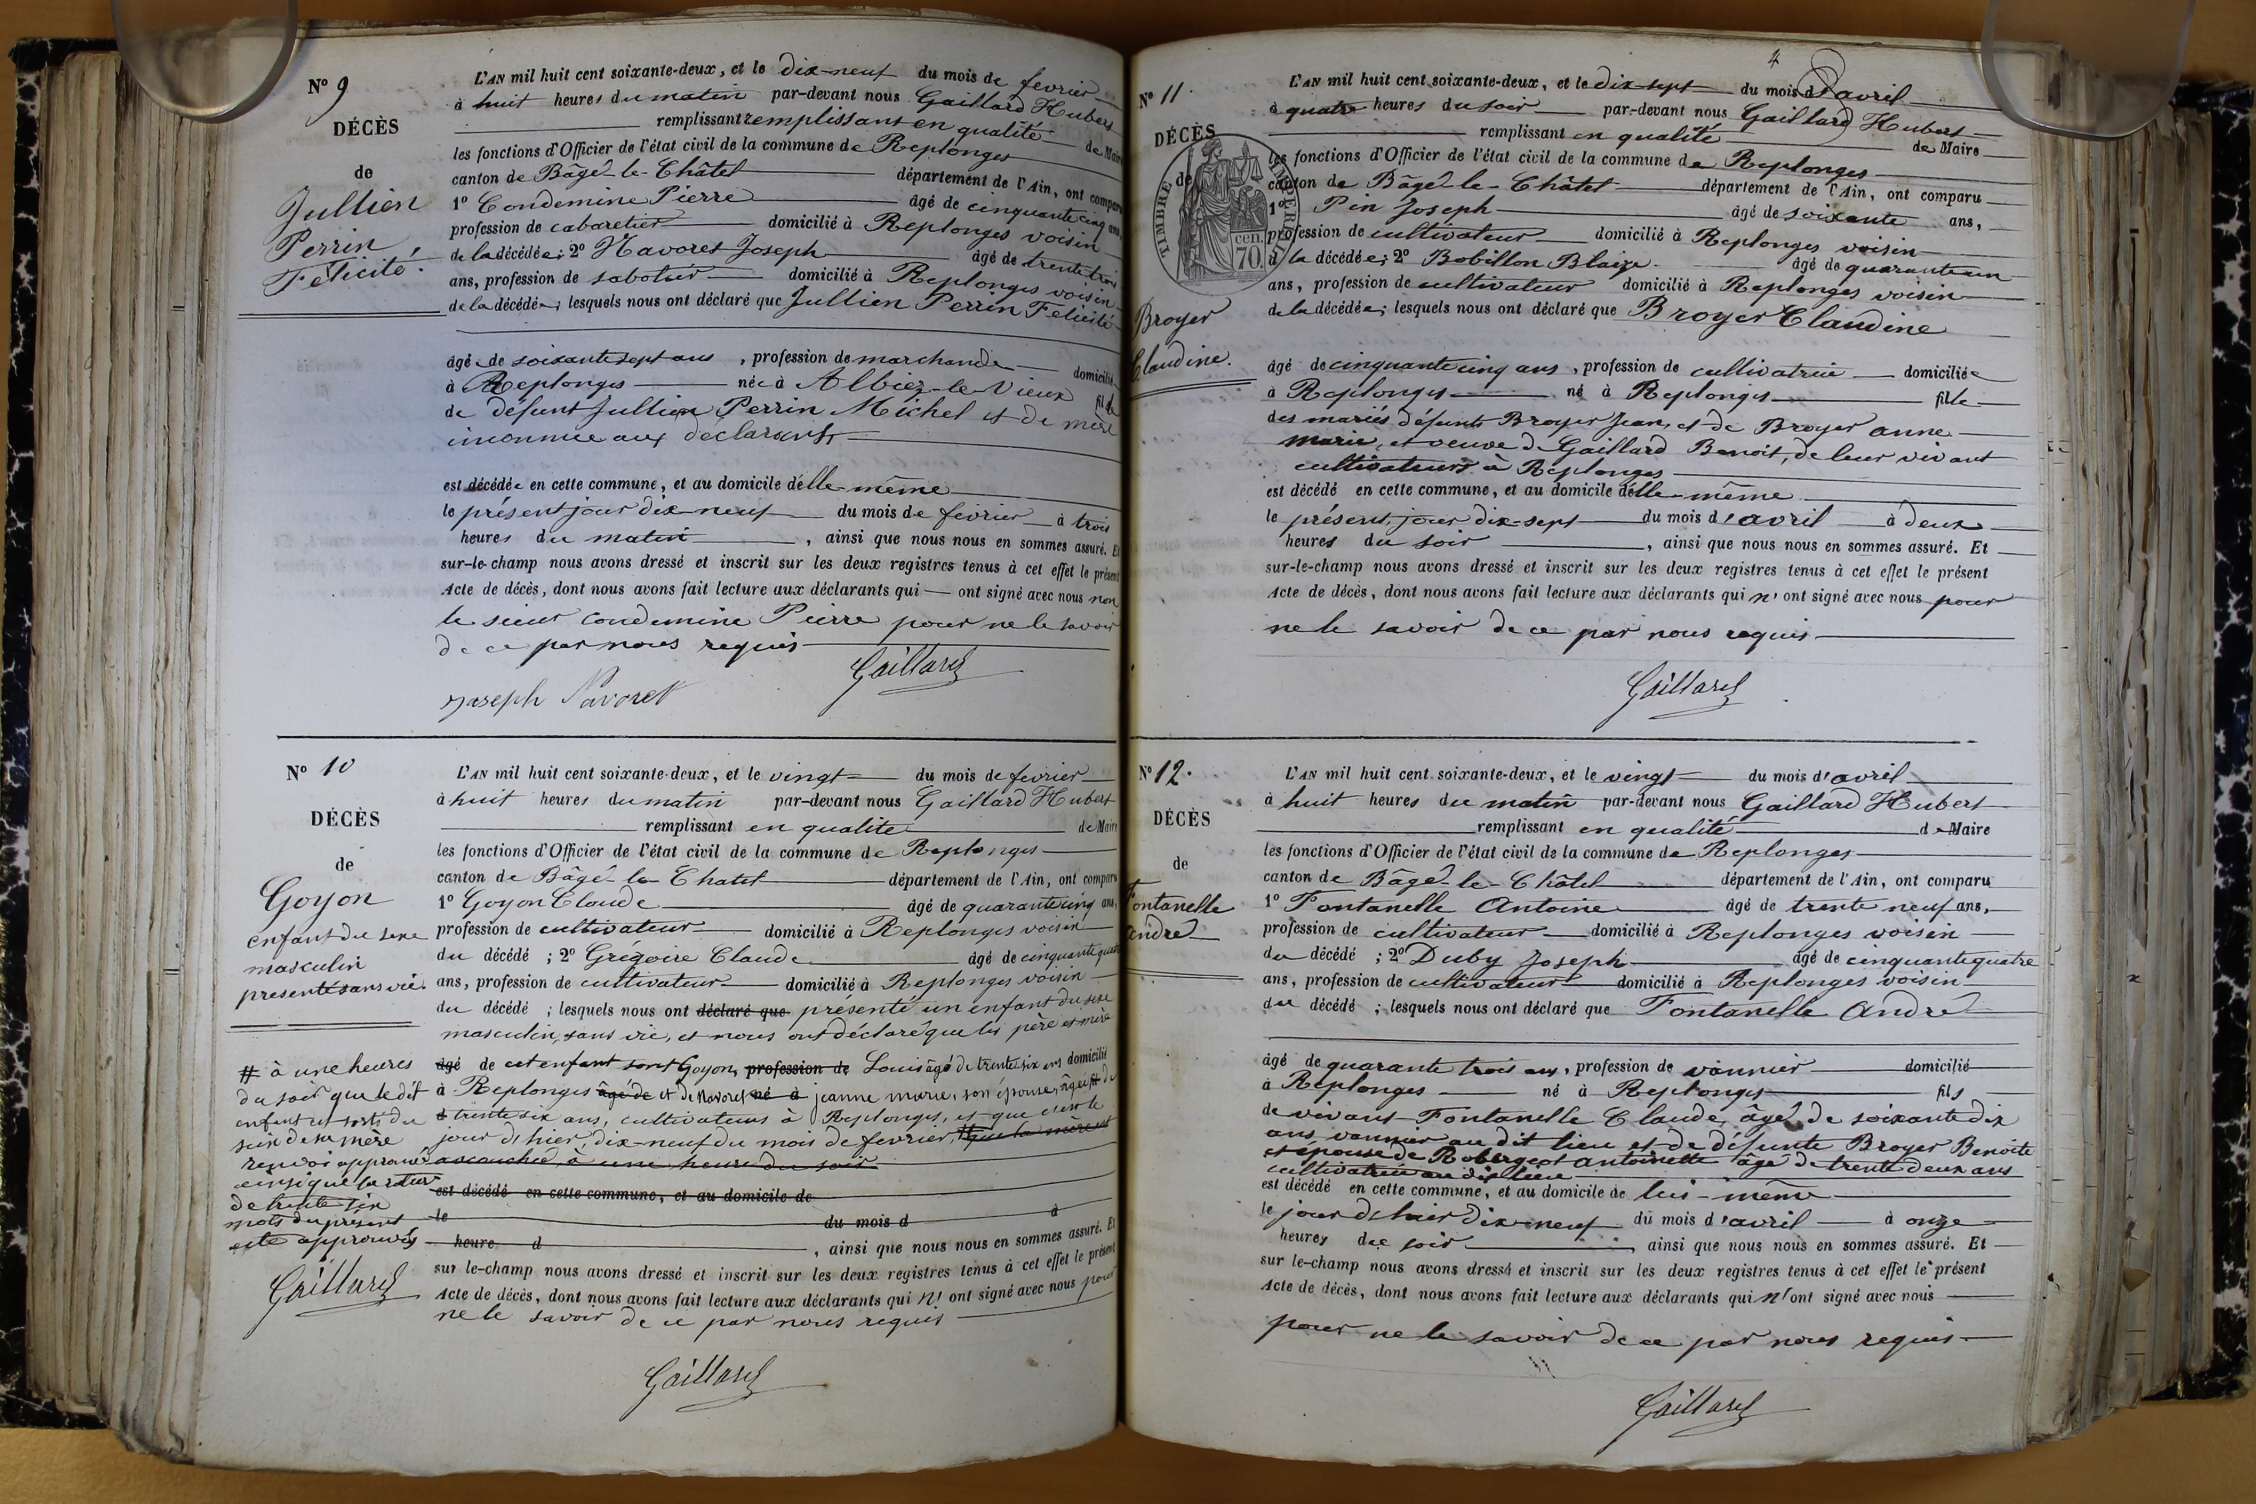 Nº 9
DÉCÈS
de
Jullien
Perrin
Félicité.
L'AN mil huit cent soixante-deux, et le dix-neuf du mois de fevrier
à huit heures du matin par-devant nous Gaillard Hubert
remplissant remplissant en qualité de Maire
les fonctions d'Officier de l'état civil de la commune de Replonges
canton de Bâgé-le-Châtel département de l'Ain, ont comparu
1º Condemine Pierre âgé de cinquante cinq ans,
profession de cabaretier domicilié à Replonges voisin
de la décédée; 2º Navoret Joseph âgé de trente trois
ans, profession de sabotier domicilié à Replonges voisin
de la décédée; lesquels nous ont déclaré que Jullien Perrin Felicité
âgé de soixante sept ans, profession de marchande domiciliée
à Replonges née à Albiez-le-Vieux fille
de défunt Jullien Perrin Michel et de mère
inconnue aux déclarants
est décédée en cette commune, et au domicile d'elle-même
le présent jour dix-neuf du mois de fevrier à trois
heures du matin, ainsi que nous nous en sommes assuré. Et
sur-le-champ nous avons dressé et inscrit sur les deux registres tenus à cet effet le présent
Acte de décès, dont nous avons fait lecture aux déclarants qui ont signé avec nous non
le sieur Condemine Pierre pour ne le savoir
de ce par nous requis
Gaillard
Joseph Navoret
Nº 10
DÉCÈS
de
Goyon
enfant du sexe
masculin
presenté sans vie.
L'AN mil huit cent soixante-deux, et le vingt du mois de fevrier
à huit heures du matin par-devant nous Gaillard Hubert
remplissant en qualite de Maire
les fonctions d'Officier de l'état civil de la commune de Replonges
canton de Bâgé-le-Chatel département de l'Ain, ont comparu
1º Goyon Claude âgé de quarante cinq ans,
profession de cultivateur domicilié à Replonges voisin
du décédé; 2º Grégoire Claude âgé de cinquante quatre
ans, profession de cultivateur domicilié à Replonges voisin
du décédé; lesquels nous ont déclaré que présenté un enfant du sexe
masculin, sans vie, et nous ont déclaré que les père et mère
âgé de cet enfant sont Goyon, profession de Louis âgé de trente six ans domicilié
à Replonges âgé de et de Navoret né à jeanne marie, son épouse, âgée fil de
trente six ans, cultivateurs à Replonges, et que c'est le
jour d'hier, dix-neuf du mois de fevrier, # que la mère est
accouchée, à une heure du soir
est décédé en cette commune, et au domicile de
le du mois d à
heure d, ainsi que nous nous en sommes assuré. Et
sur le-champ nous avons dressé et inscrit sur les deux registres tenus à cet effet le présent
Acte de décès, dont nous avons fait lecture aux déclarants qui n' ont signé avec nous pour
ne le savoir de ce par nous requis
Gaillard
# à une heures
du soir que le dit
enfant est sorti du
sein de sa mère
renvoi approuvé
ainsi que la rature
de trente six
mots du présent
acte approuvés
Gaillard
Nº 11.
DÉCÈS
de
TIMBRE IMPERIAL
70 cen.
Broyer
Claudine.
L'AN mil huit cent soixante-deux, et le dix-sept du mois d'avril
à quatre heures du soir par-devant nous Gaillard Hubert
remplissant en qualité de Maire
les fonctions d'Officier de l'état civil de la commune de Replonges
canton de Bâgé-le-Châtel département de l'Ain, ont comparu
1º Pin Joseph âgé de soixante ans,
profession de cultivateur domicilié à Replonges voisin
d la décédée; 2º Bobillon Blaize âgé de quarante un
ans, profession de cultivateur domicilié à Replonges voisin
de la décédée; lesquels nous ont déclaré que Broyer Claudine
âgé de cinquante cinq ans, profession de cultivatrice domiciliée
à Replonges né à Replonges fille
des mariés défunts Broyer Jean, et de Broyer anne
marie, et veuve de Gaillard Benoit, de leur vivant
cultivateurs à Replonges
est décédé en cette commune, et au domicile d'elle-même
le présent jour dix-sept du mois d'avril à deux
heures du soir, ainsi que nous nous en sommes assuré. Et
sur-le-champ nous avons dressé et inscrit sur les deux registres tenus à cet effet le présent
Acte de décès, dont nous avons fait lecture aux déclarants qui n' ont signé avec nous pour
ne le savoir de ce par nous requis
Gaillard
Nº 12.
DÉCÈS
de
Fontanelle
andré
L'AN mil huit cent soixante-deux, et le vingt du mois d'avril
à huit heures du matin par-devant nous Gaillard Hubert
remplissant en qualité de Maire
les fonctions d'Officier de l'état civil de la commune de Replonges
canton de Bâgé-le-Châtel département de l'Ain, ont comparu
1º Fontanelle Antoine âgé de trente neuf ans,
profession de cultivateur domicilié à Replonges voisin
du décédé; 2º Duby Joseph âgé de cinquante quatre
ans, profession de cultivateur domicilié à Replonges voisin
du décédé; lesquels nous ont déclaré que Fontanelle André
âgé de quarante trois ans, profession de vannier domicilié
à Replonges né à Replonges fils
de vivant Fontanelle Claude, âgé de soixante dix
ans vannier au dit lieu et de défunte Broyer Benoite
et épouse de Robergeot antoinette âgé de trente deux ans
cultivatrice au dit lieu
est décédé en cette commune, et au domicile de lui-même
le jour d'hier dix-neuf du mois d'avril à onze
heures du soir, ainsi que nous nous en sommes assuré. Et
sur le-champ nous avons dressé et inscrit sur les deux registres tenus à cet effet le présent
Acte de décès, dont nous avons fait lecture aux déclarants qui n' ont signé avec nous
pour ne le savoir de ce par nous requis
Gaillard